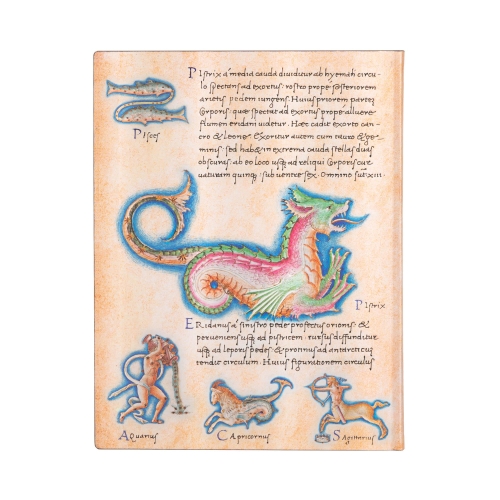 PIstrix á media cauda diuiditur ab hyemali circu-
lo spectans ad exortus· rostro prope posteriorem
arietis pedem iungens· Huius priorem partem
Corporis· quae spectat ad exortus prope alluere
flumen eridani uidetur. Haec cadit exorto can-
cro & leone· Exoritur autem cum tauro & ge-
minis· sed habet in extrema cauda stellas duas
obscuras· ab eo loco usq; ad reliqui Corporis cur-
uaturam quinq; sub uentre sex. Omnino sut xiii·
PIsces
PIstrix
ERidanus á sinistro pede profectus orionis· &
perueniens usq; ad pistricem· rursus diffunditur
usq; ad leporis pedes· & protinus ad antarcticum
tendit circulum. Huius figurationem circulus
AQuarius
CApricornus
SAgittarius